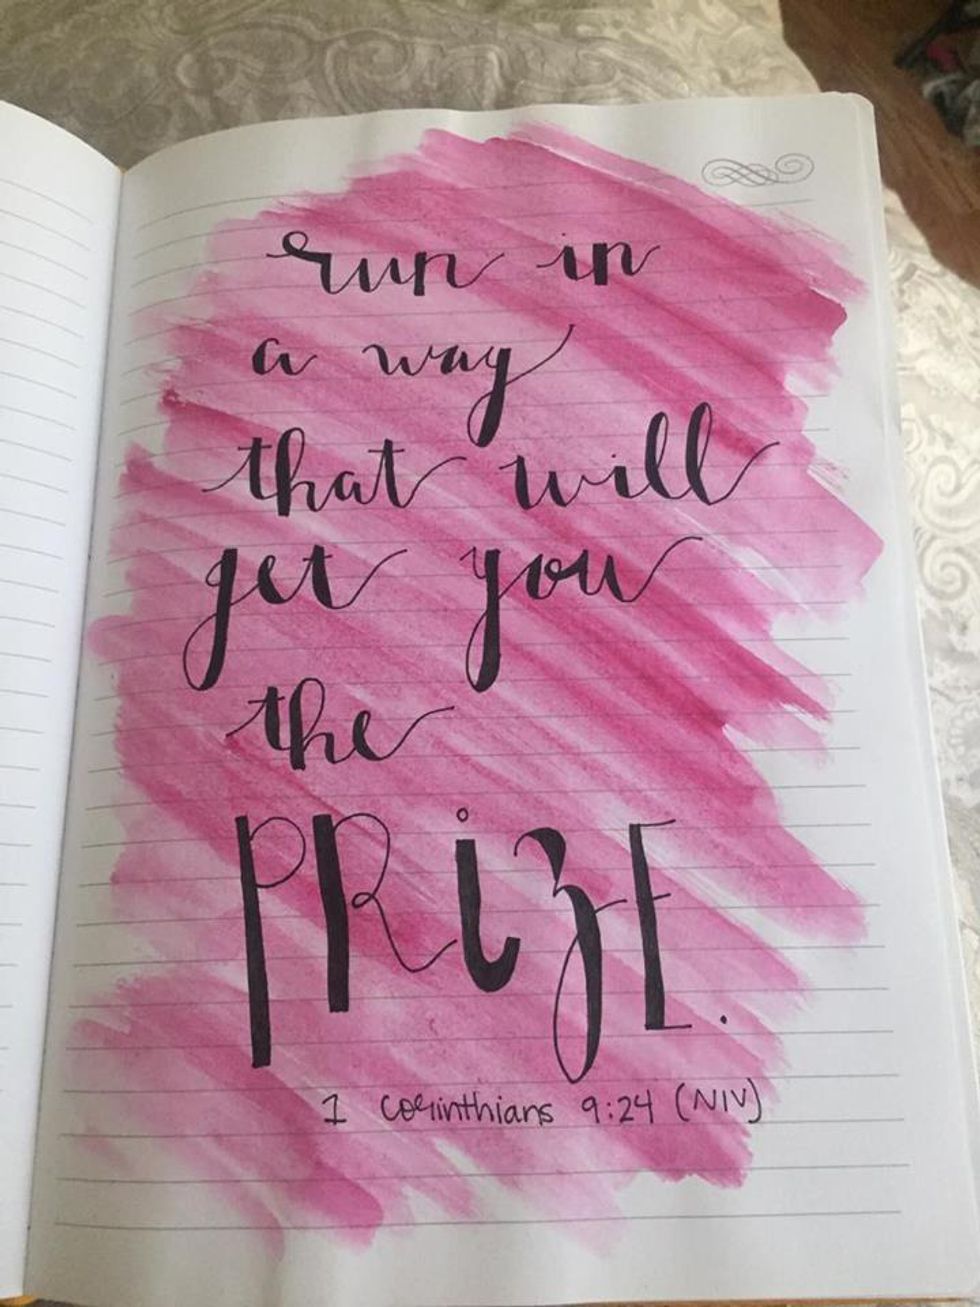 run in
a way
that will
get you
the
PRiZE.
1 Corinthians 9:24 (NIV)